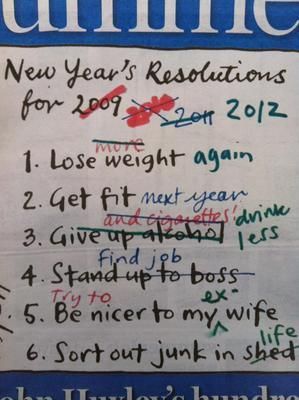 ummer
New Year's Resolutions
for 2009 2011 2012
more
1. Lose weight again
2. Get fit next year
and cigarettes! drink
3. Give up alcohol less
find job
4. Stand up to boss
Try to ex-
5. Be nicer to my wife
life
6. Sort out junk in shed
ohn Huxley's hundre